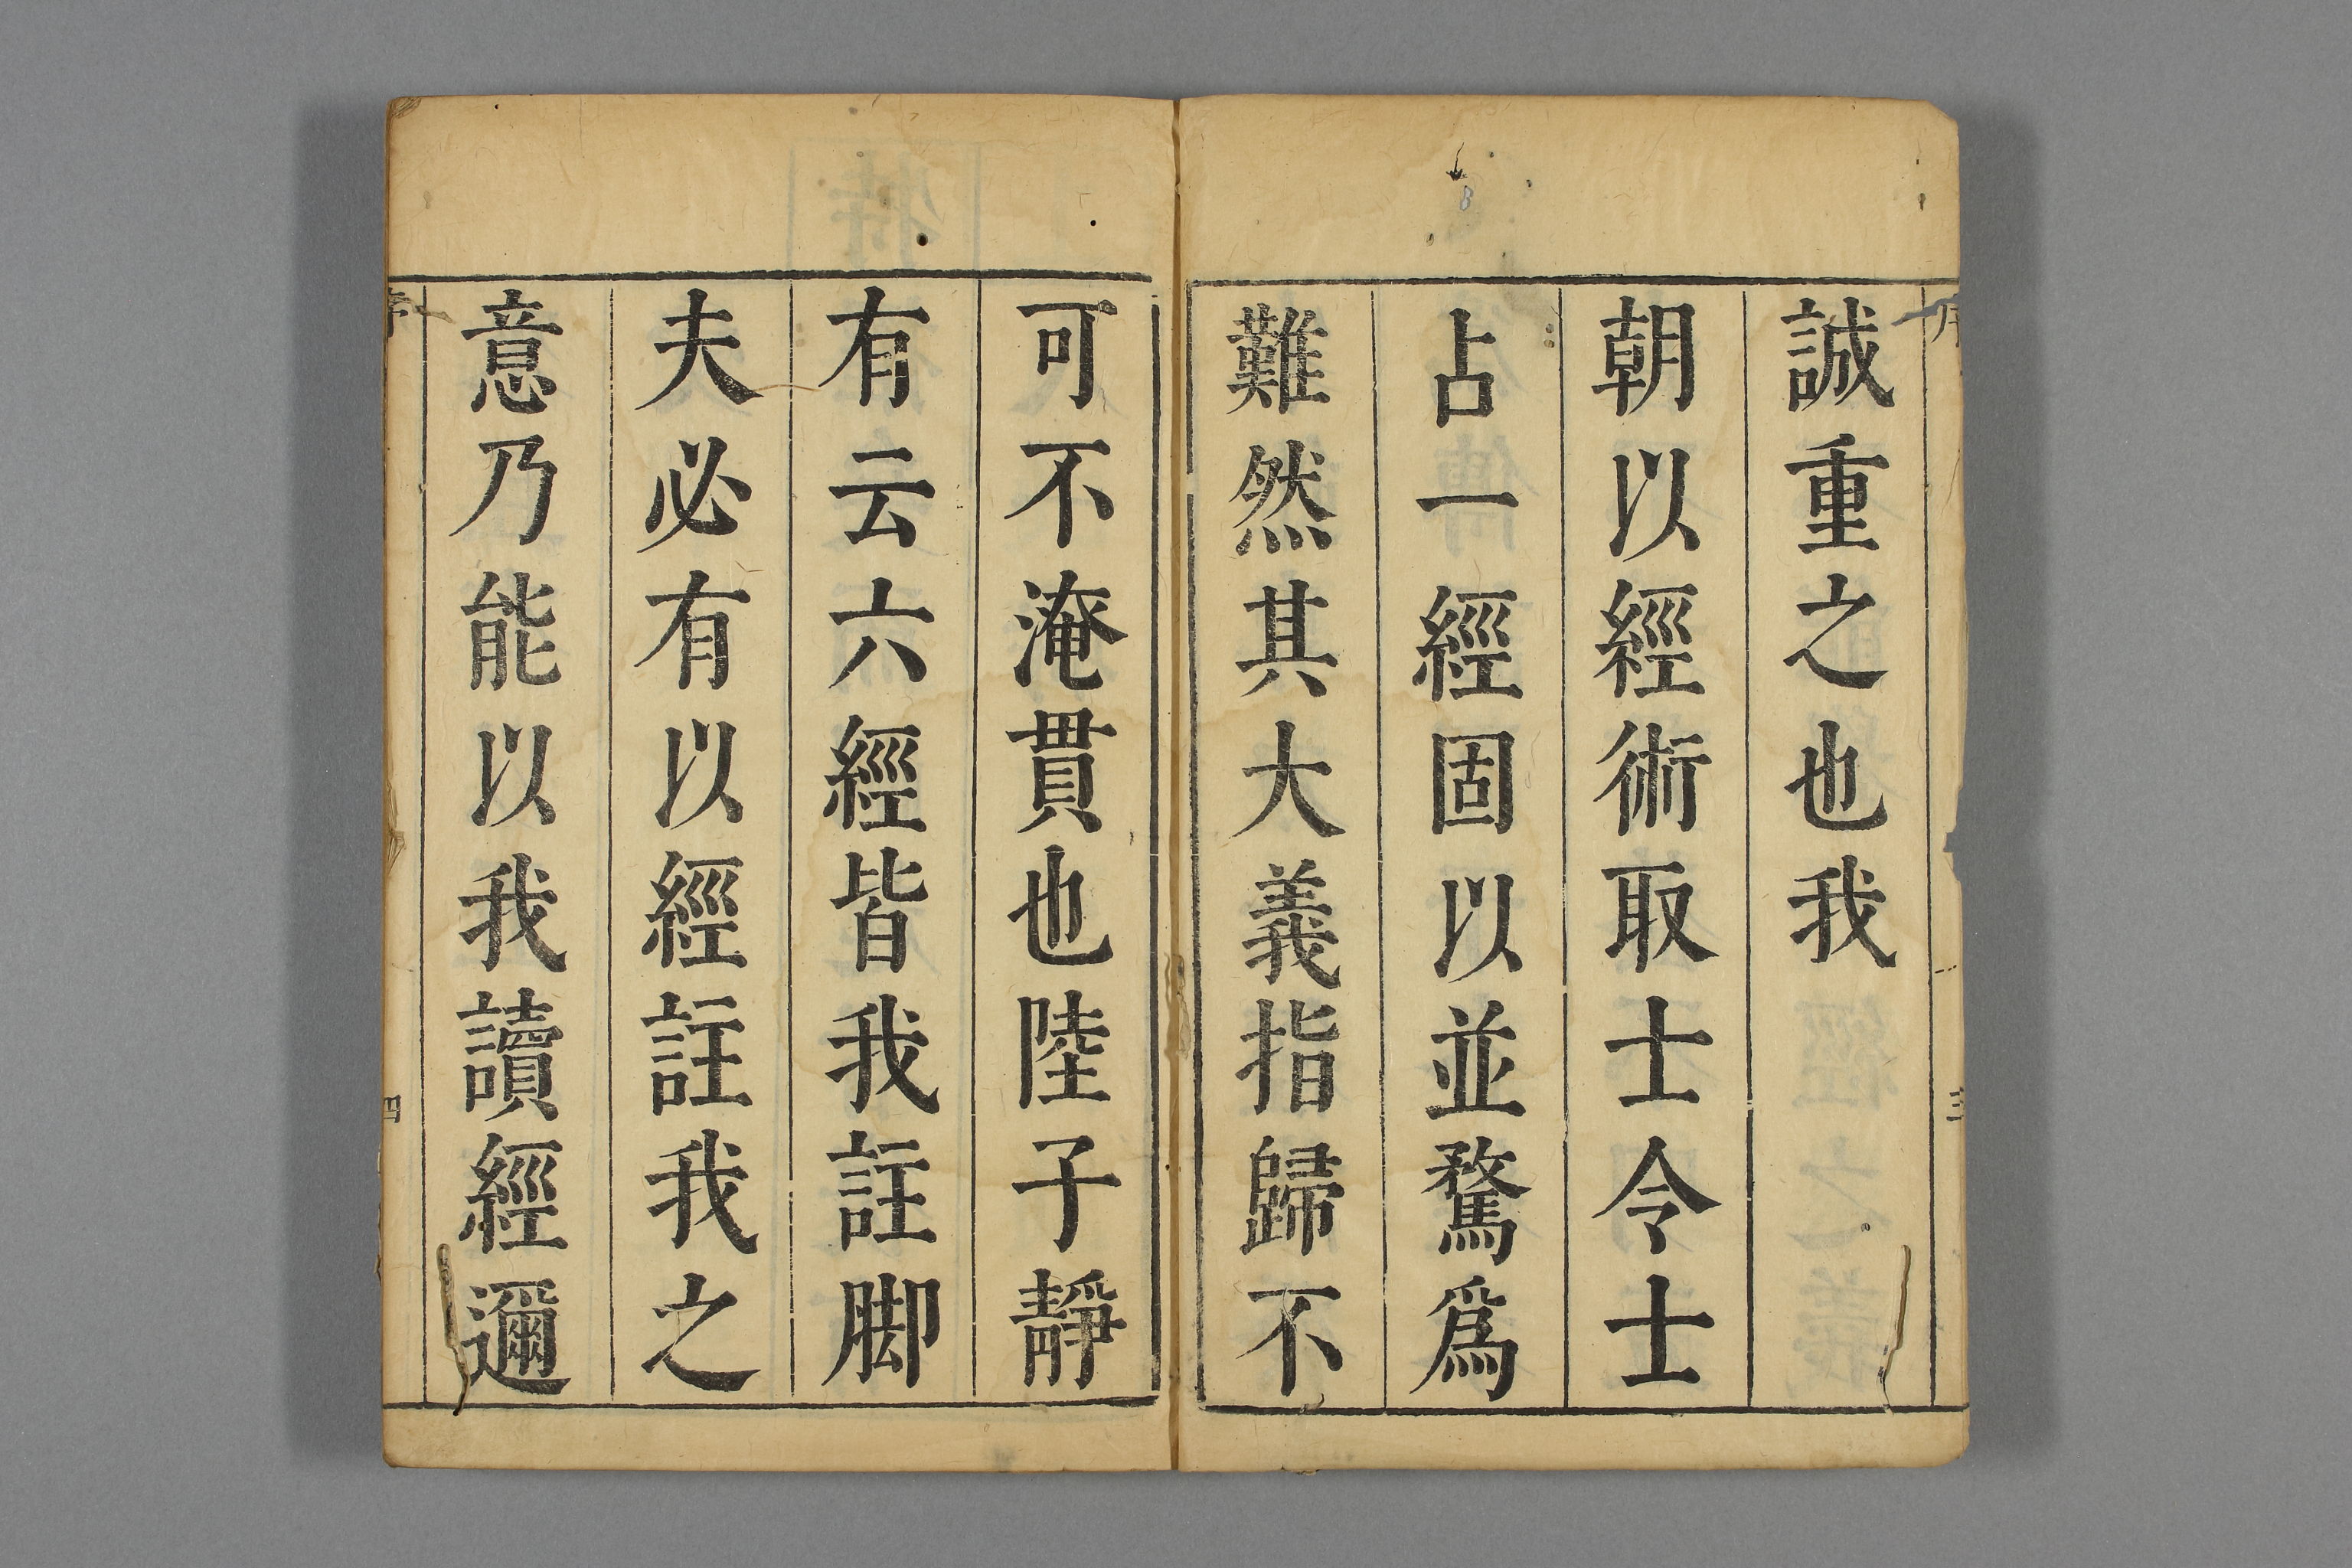 誠重之也我
朝以經術取士令士
占一經固以並騖爲
難然其大義指歸不
可不淹貫也陸子靜
有云六經皆我註脚
夫必有以經註我之
意乃能以我讀經邇
序
四